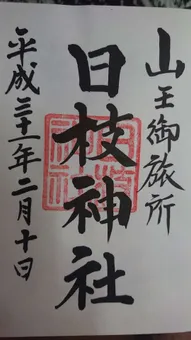 山王御旅所
日枝神社
平成三十一年二月十日